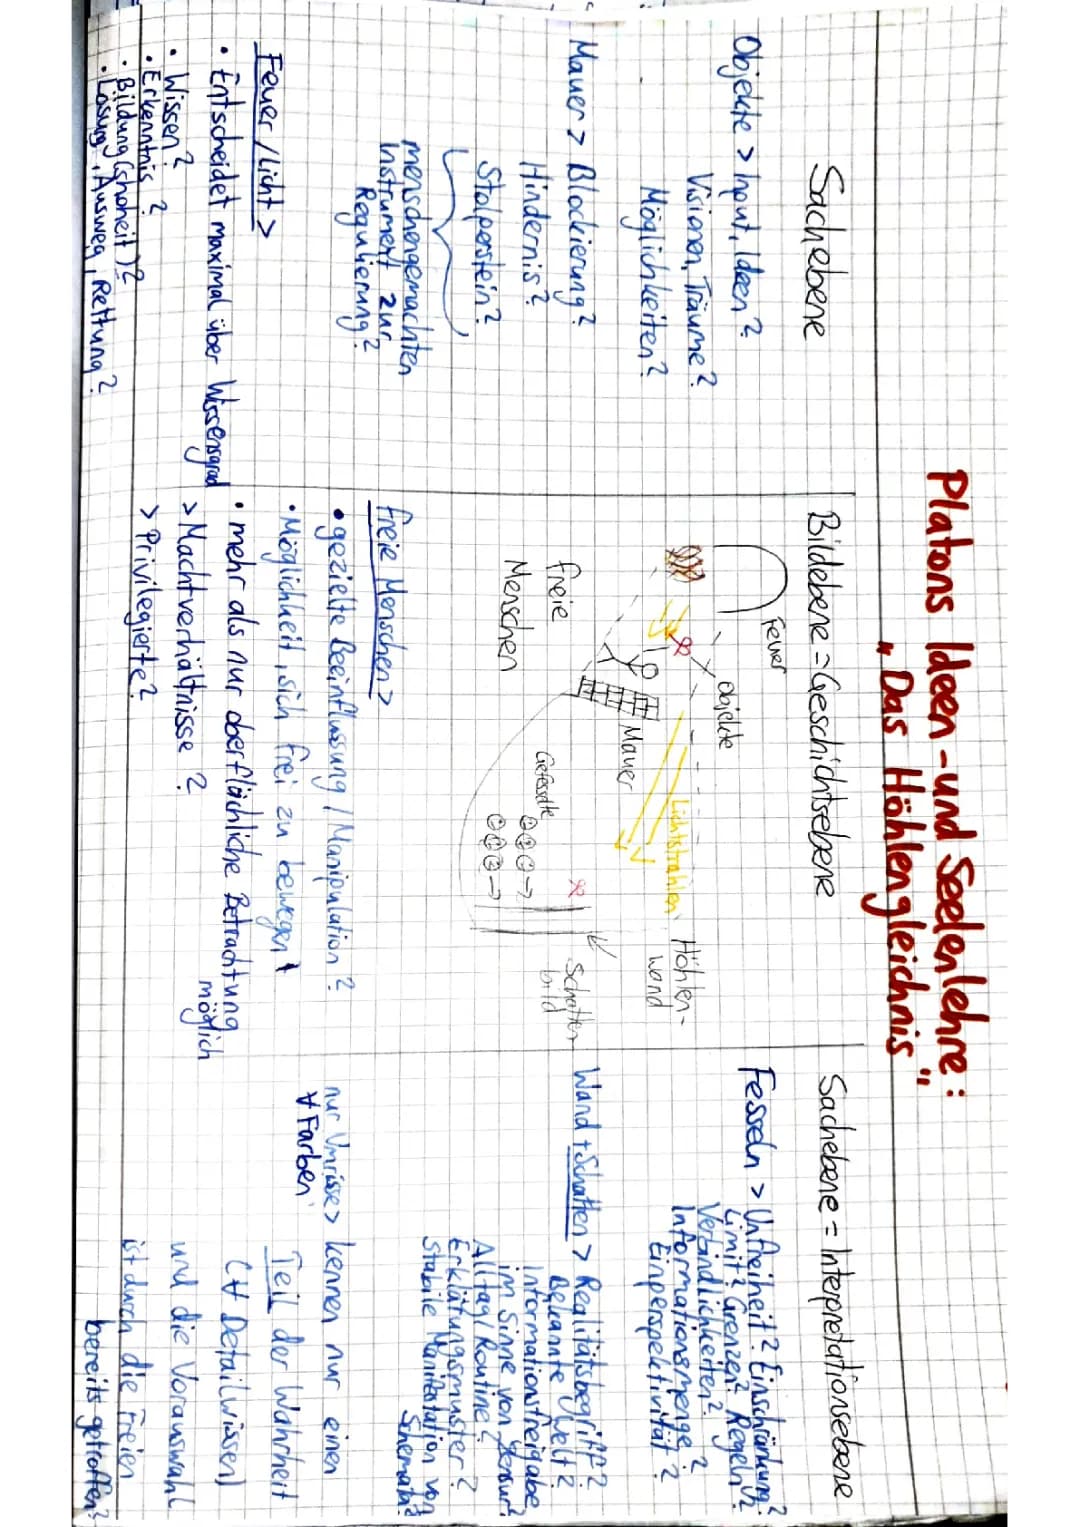 Platons Ideen-und Seelenlehre:
"Das Höhlengleichnis"
Sachebene
Objekte > Input, Ideen?
Visionen, Träume?
Möglichkeiten?
Mauer > Blockierung?
Hindernis?
Stolperstein?
menschengemachten
Instrument zur
Regulierung?
Feuer / Licht >
• Entscheidet maximal über Wissensgrad
• Wissen?
• Erkenntnis?
• Bildung(shoheit)?
• Lösung, Ausweg, Rettung?
Bildebene = Geschichtsebene
Feuer
Objekte
Lichtstrahlen
Höhlen-
wand
Mauer
freie
Menschen
Gefesselte
Schatten
bild
freie Menschen >
• gezielte Beeinflussung / Manipulation?
• Möglichkeit, sich frei zu bewegen
• mehr als nur oberflächliche Betrachtung
möglich
> Machtverhältnisse?
> Privilegierte?
Sachebene = Interpretationsebene
Fesseln > Unfreiheit? Einschränkung?
Limit? Grenzen? Regeln?
Verbindlichkeiten?
Informationsmenge?
Einperspektivität?
Wand + Schatten > Realitätsbegriff?
Bekannte Welt?
Informationsfreigabe
im Sinne von Zensur?
Alltag / Routine?
Erklärungsmuster?
Stabile Manifestation von
Shemata?
nur Umrisse > kennen nur einen
∀ Farben
Teil der Wahrheit
(∀ Detailwissen)
und die Vorauswahl
ist durch die Freien
bereits getroffen?